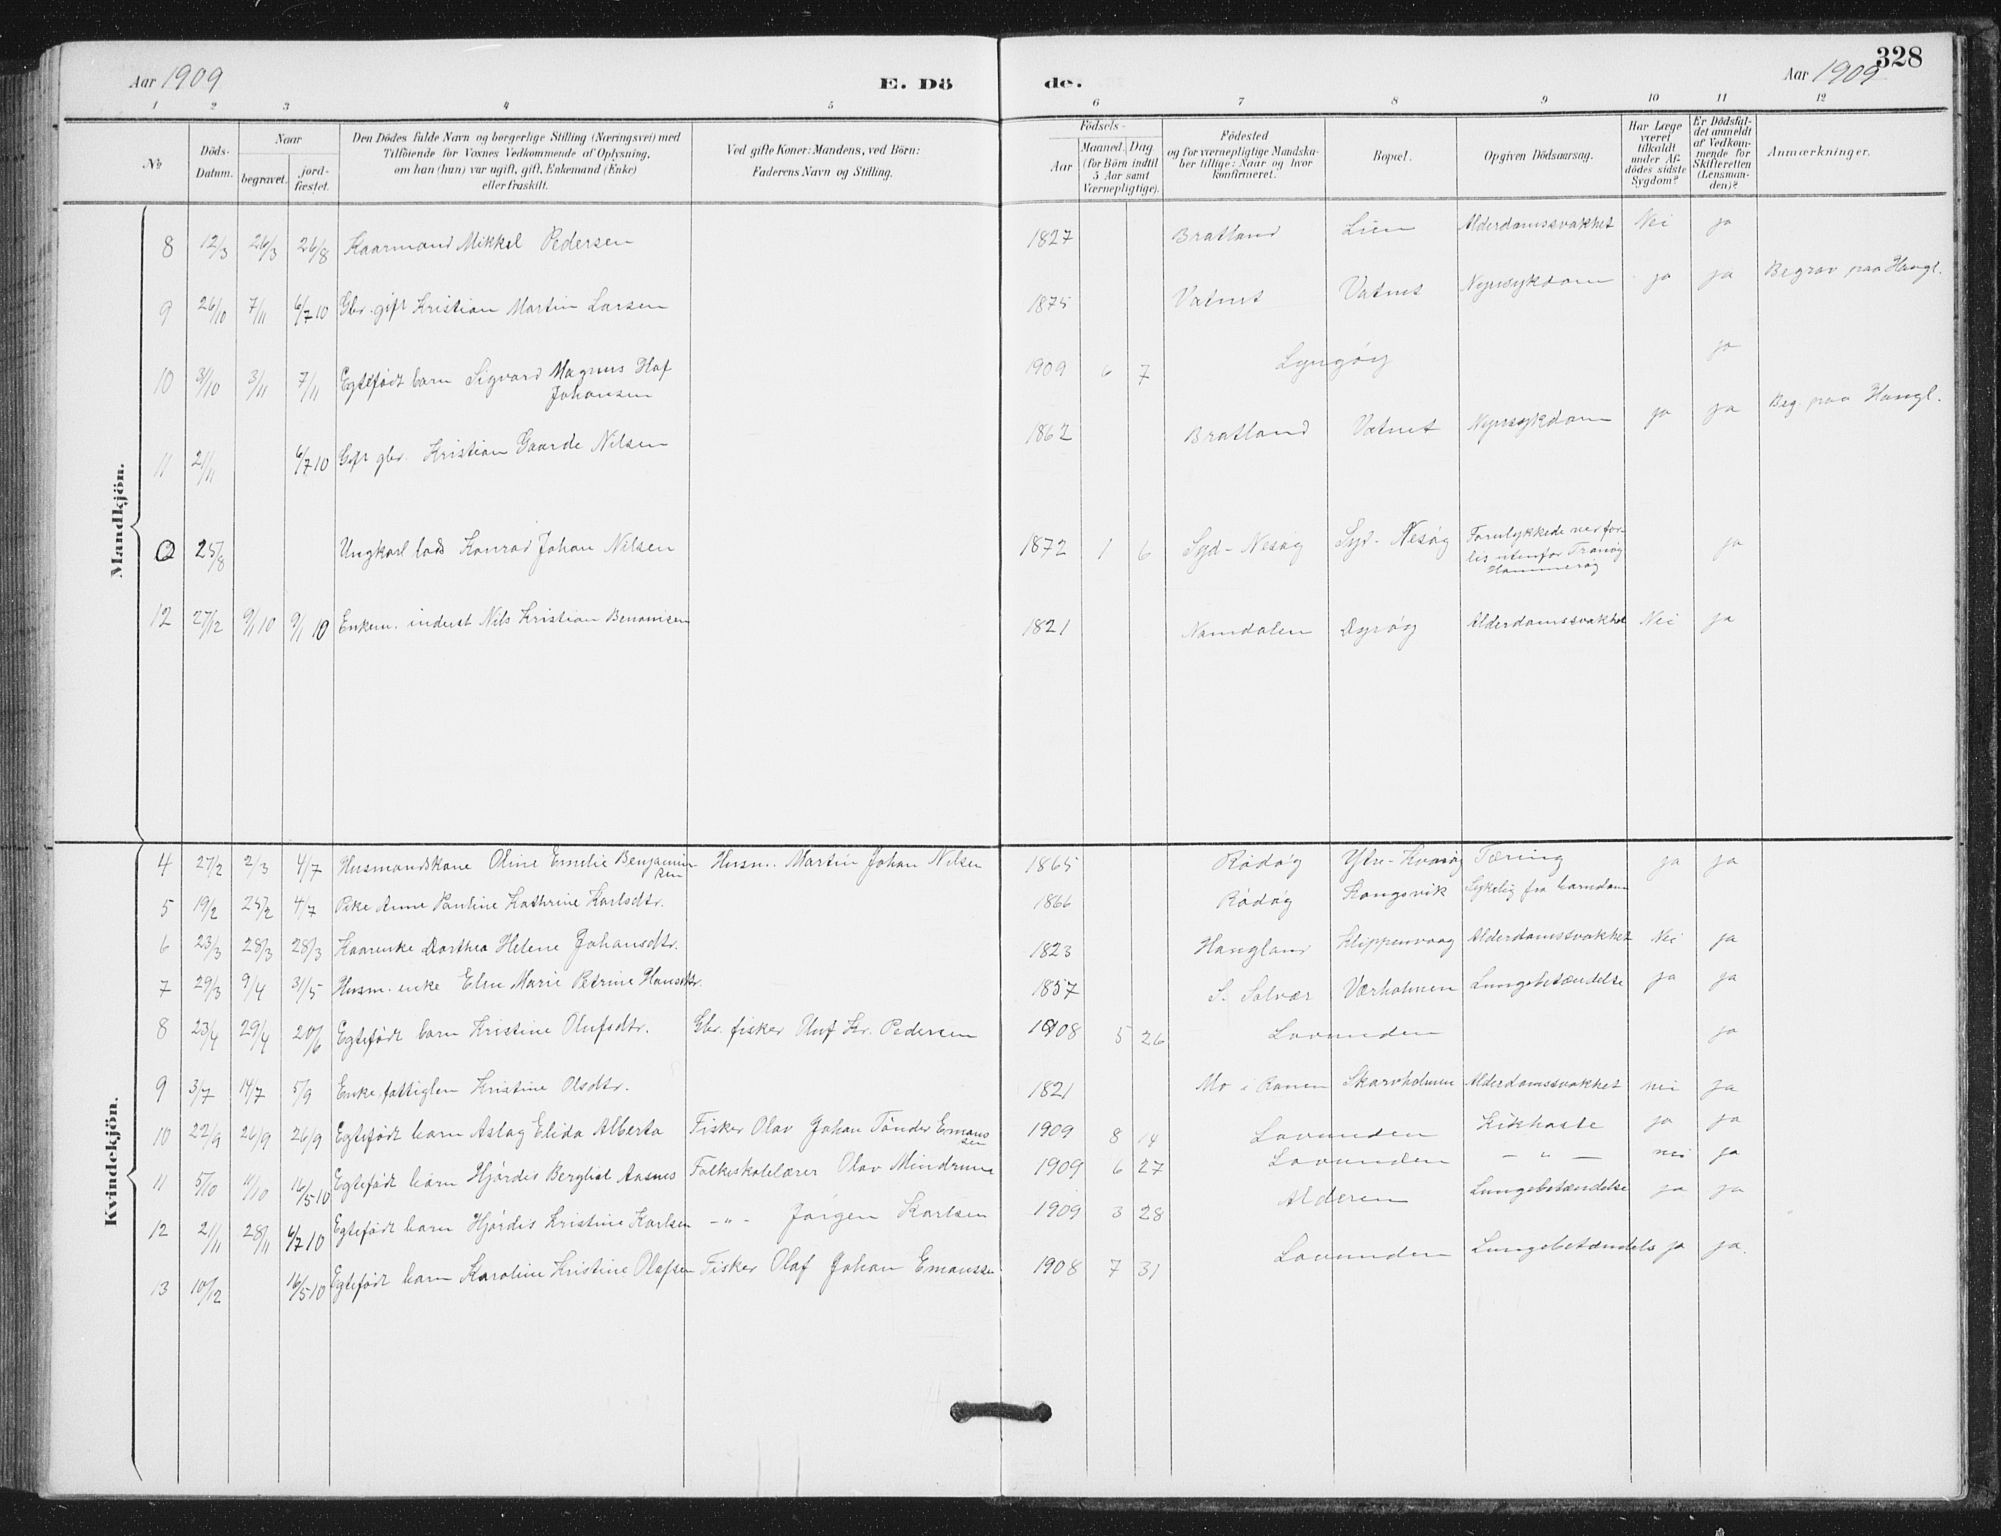 328
Aar 1909 E. Dö de. Aar 1909
1 2 3 4 5 6 7 8 9 10 11 12
No
Döds-Datum.
Naar
begravet.
jord-fæstet.
Den Dödes fulde Navn og borgerlige Stilling (Næringsvei) med
Tilföiende for Voxnes Vedkommende af Oplysning,
om han (hun) var ugift, gift, Enkemand (Enke)
eller fraskilt.
Ved gifte Koner: Mandens, ved Börn:
Faderens Navn og Stilling.
Födsels-
Aar
Maaned. Dag
(for Börn indtil
5 Aar samt
Værnepligtige).
Födested
og for værnepligtige Mandska-
ber tillige: Naar og hvor
konfirmeret.
Bopæl.
Opgiven Dödsaarsag.
Har Læge
været
tilkaldt
under Af-
dödes sidste
Sygdom?
Er Dödsfal-
det anmeldt
af Vedkom-
mende for
Skifteretten
(Lensman-
den)?
Anmærkninger.
Mandkjön.
8 12/3 26/3 26/8 Kaarmand Mikkel Pedersen 1827 Bratland Lien Alderdomssvakhet Nei ja
9 26/10 7/11 6/7 10 Gbr. gift Kristian Martin Larsen 1875 Vatnet Vatnet Nyresykdom ja ja Begrav paa Hangl.
10 3/10 3/11 7/11 Egtefödt barn Sigvard Magnus Haf
Johansen 1909 6 7 Lyngöy ja
11 21/11 6/7 10 Gift gbr. Kristian Gaarde Nilsen 1862 Bratland Vatnet Nyresykdom ja ja Beg. paa Hangl.
25/8 Ungkarl lods Konrad Johan Nilsen 1872 1 6 Syd-Nesöy Syd-Nesöy Forulykkede ved for-
lis utenfor Tranöy
Hammeröy ja
12 27/12 9/1 10 9/1 10 Enkem. inderst Nils Kristian Benonisen 1821 Namdalen Dyröy Alderdomssvakhet Nei ja
Kvindekjön.
4 27/2 2/3 4/7 Husmandskone Oline Emelie Benjamin
sen Husm. Martin Johan Nilsen 1865 Rödöy Ytre-Kvaröy Tæring ja ja
5 19/2 25/2 4/7 Pike Anne Pauline Kathrine Karlsdtr. 1866 Rödöy Kongsvik Sykelig fra barndom
6 23/3 28/3 28/3 Kaarenke Dorthea Helene Johansdtr. 1823 Hangland Klippenvaag Alderdomssvakhet Nei ja
7 29/3 9/4 31/5 Husm. enke Elen Marie Petrine Hansdtr. 1837 S. Solvær Værholmen Lungebetændelse ja ja
8 23/4 29/4 20/6 Egtefödt barn Kristine Olufsdtr. Gbr. fisker Oluf Kr. Pedersen 1908 5 26 Lovunden ja
9 3/7 14/7 5/9 Enke, fattiglem Kristine Olsdtr. 1821 Mo i Ranen Skarvholmen Alderdomssvakhet nei ja
10 22/9 26/9 26/9 Egtefödt barn Aslag Elida Alberta Fisker Olav Johan Tönder Emaus
sen 1909 8 14 Lovunden Kikhoste ja ja
11 5/10 11/10 16/5 10 Egtefödt barn Hjördis Bergliot Aasnes Folkeskolelærer Olav Mindrum 1909 6 27 Lovunden — " — nei ja
12 2/11 28/11 6/7 10 Egtefödt barn Hjördis Kristine Karlsen -"- Jörgen Karlsen 1909 3 28 Alderen Lungebetændelse ja ja
13 10/12 16/5 10 Egtefödt barn Karoline Kristine Olafsen Fisker Olaf Johan Emaussen 1908 7 31 Lovunden Lungebetændels ja ja.